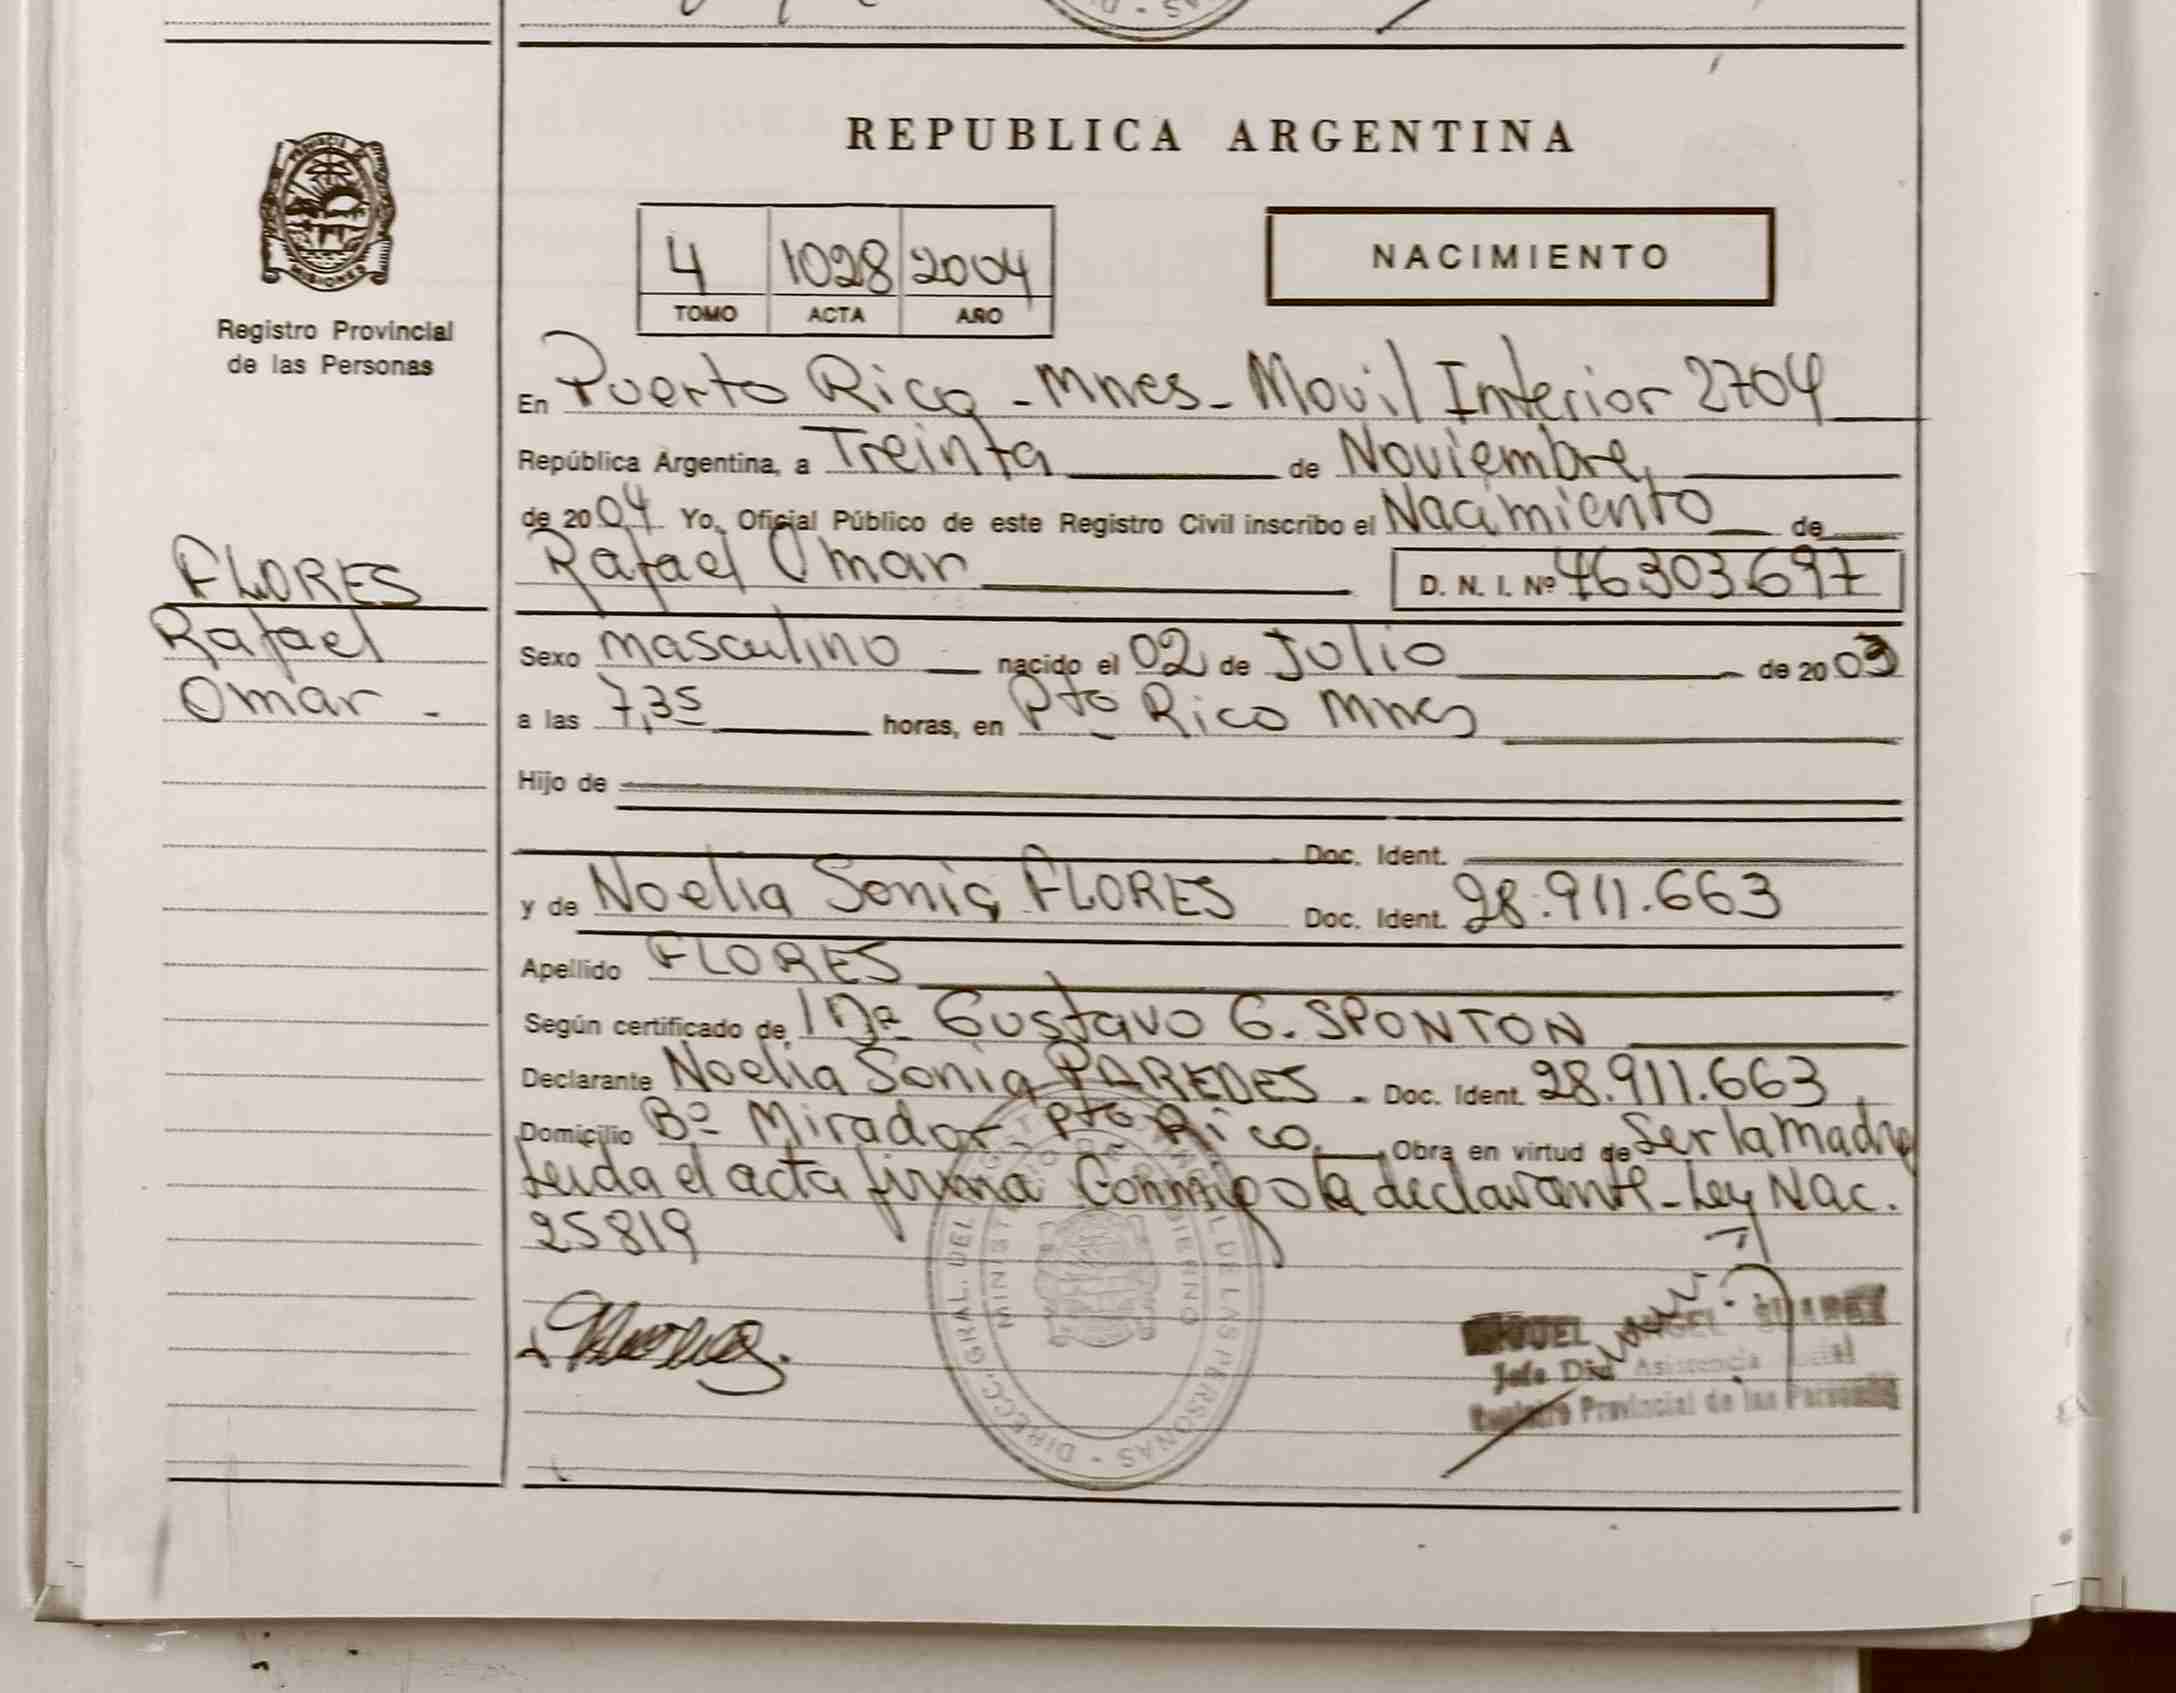 REPUBLICA ARGENTINA
PROVINCIA DE
MISIONES
Registro Provincial
de las Personas
4 1028 2004
TOMO ACTA AÑO
NACIMIENTO
En Puerto Rico - Mnes - Movil Interior 2704
República Argentina, a Treinta de Noviembre
de 2004 Yo, Oficial Público de este Registro Civil inscribo el Nacimiento de
Rafael Omar D. N. I. Nº 46303.697
FLORES
Rafael
Omar -
Sexo masculino nacido el 02 de Julio de 2003
a las 7,35 horas, en Pto Rico Mnes
Hijo de
Doc. Ident.
y de Noelia Sonia FLORES Doc. Ident. 28.911.663
Apellido FLORES
Según certificado de Gustavo G. SPONTON
Declarante Noelia Sonia PAREDES - Doc. Ident. 28.911.663
Domicilio Bº Mirador - Pto Rico Obra en virtud de Ser la madre
Leida el acta firma Conmigo la declarante - Ley Nac.
25819
DIRECC. GRAL. DEL DE LAS PERSONAS
MIGUEL ANGEL SUAREZ
Jefe Asistencia Social
Registro Provincial de las Personas